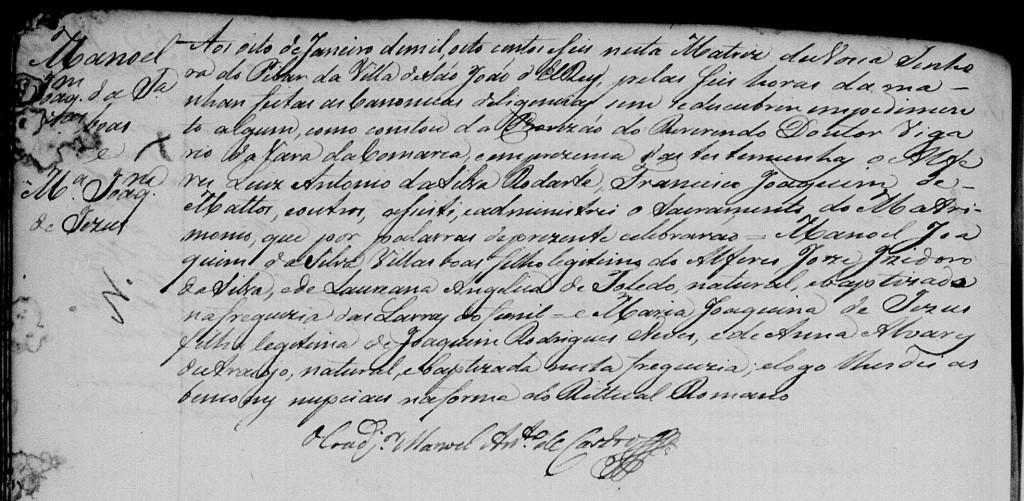 Manoel
Jm
Joaq. da Sa
Villas boas
e
Ma. Joaqna
de Jezus
N.
Aos oito de Janeiro de mil oito centos seis nesta Matriz de Nossa Senho
ra do Pilar da Villa de São João d'El Rey, pelas seis horas da ma-
nhan feitas as Canonicas deligencias, sem se descubrir empedimen
to algum, como constou da Provizão do Reverendo Doutor Viga
rio da Vara da Comarca, e em prezença das testemunhas o Alfe
res Luiz Antonio da Silva Rodarte, Francisco Joaquim de
Mattos, e outros, assisti, e administrei o Sacramento do Matri-
monio, que por palavras de prezente celebrarão = Manoel Joa
quim da Silva Villas boas filho legitimo do Alferes Joze Izidoro
da Silva, e de Laureana Angelica de Toledo, natural, e baptizado
na freguezia das Lavras do Funil = e Maria Joaquina de Jezus
filha legitima de Joaquim Rodrigues Neves, e de Anna Alvares
de Araujo, natural, e baptizada nesta freguezia; e logo lhes dei as
bençoens nupciaes na forma do Rittual Romano
O Coadj.r Manoel Anto. de Castro